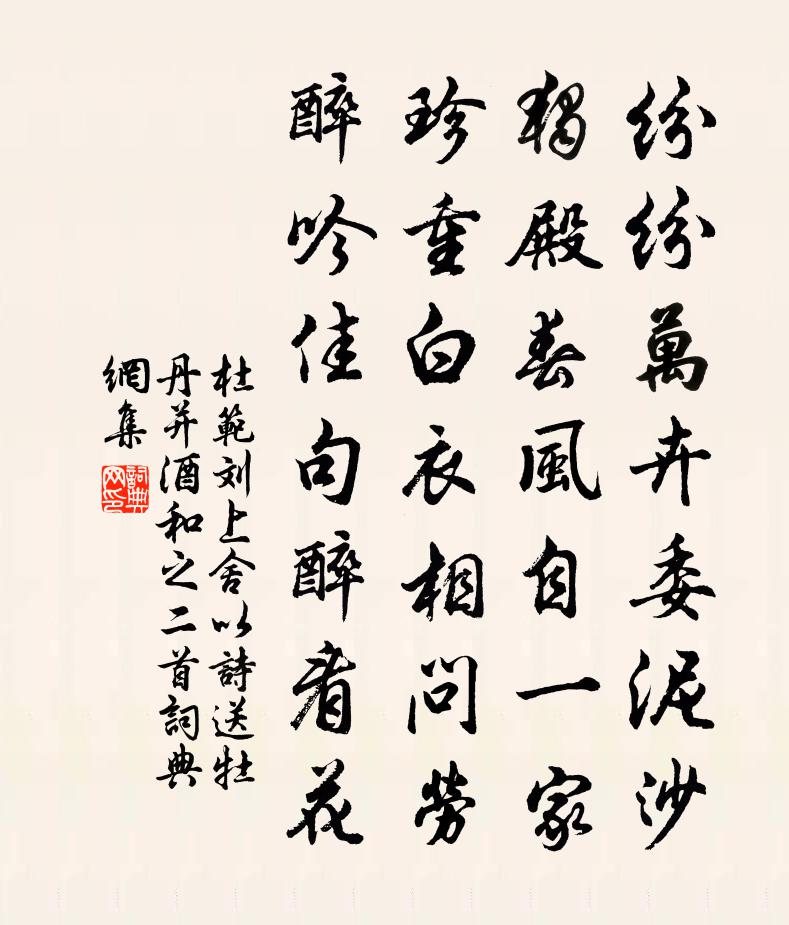 紛紛萬卉委泥沙
獨殿春風自一家
珍重白衣相問勞
醉吟佳句醉看花
杜範刘上舍以詩送牡
丹并酒和之二首詞典
網集
詞典网印